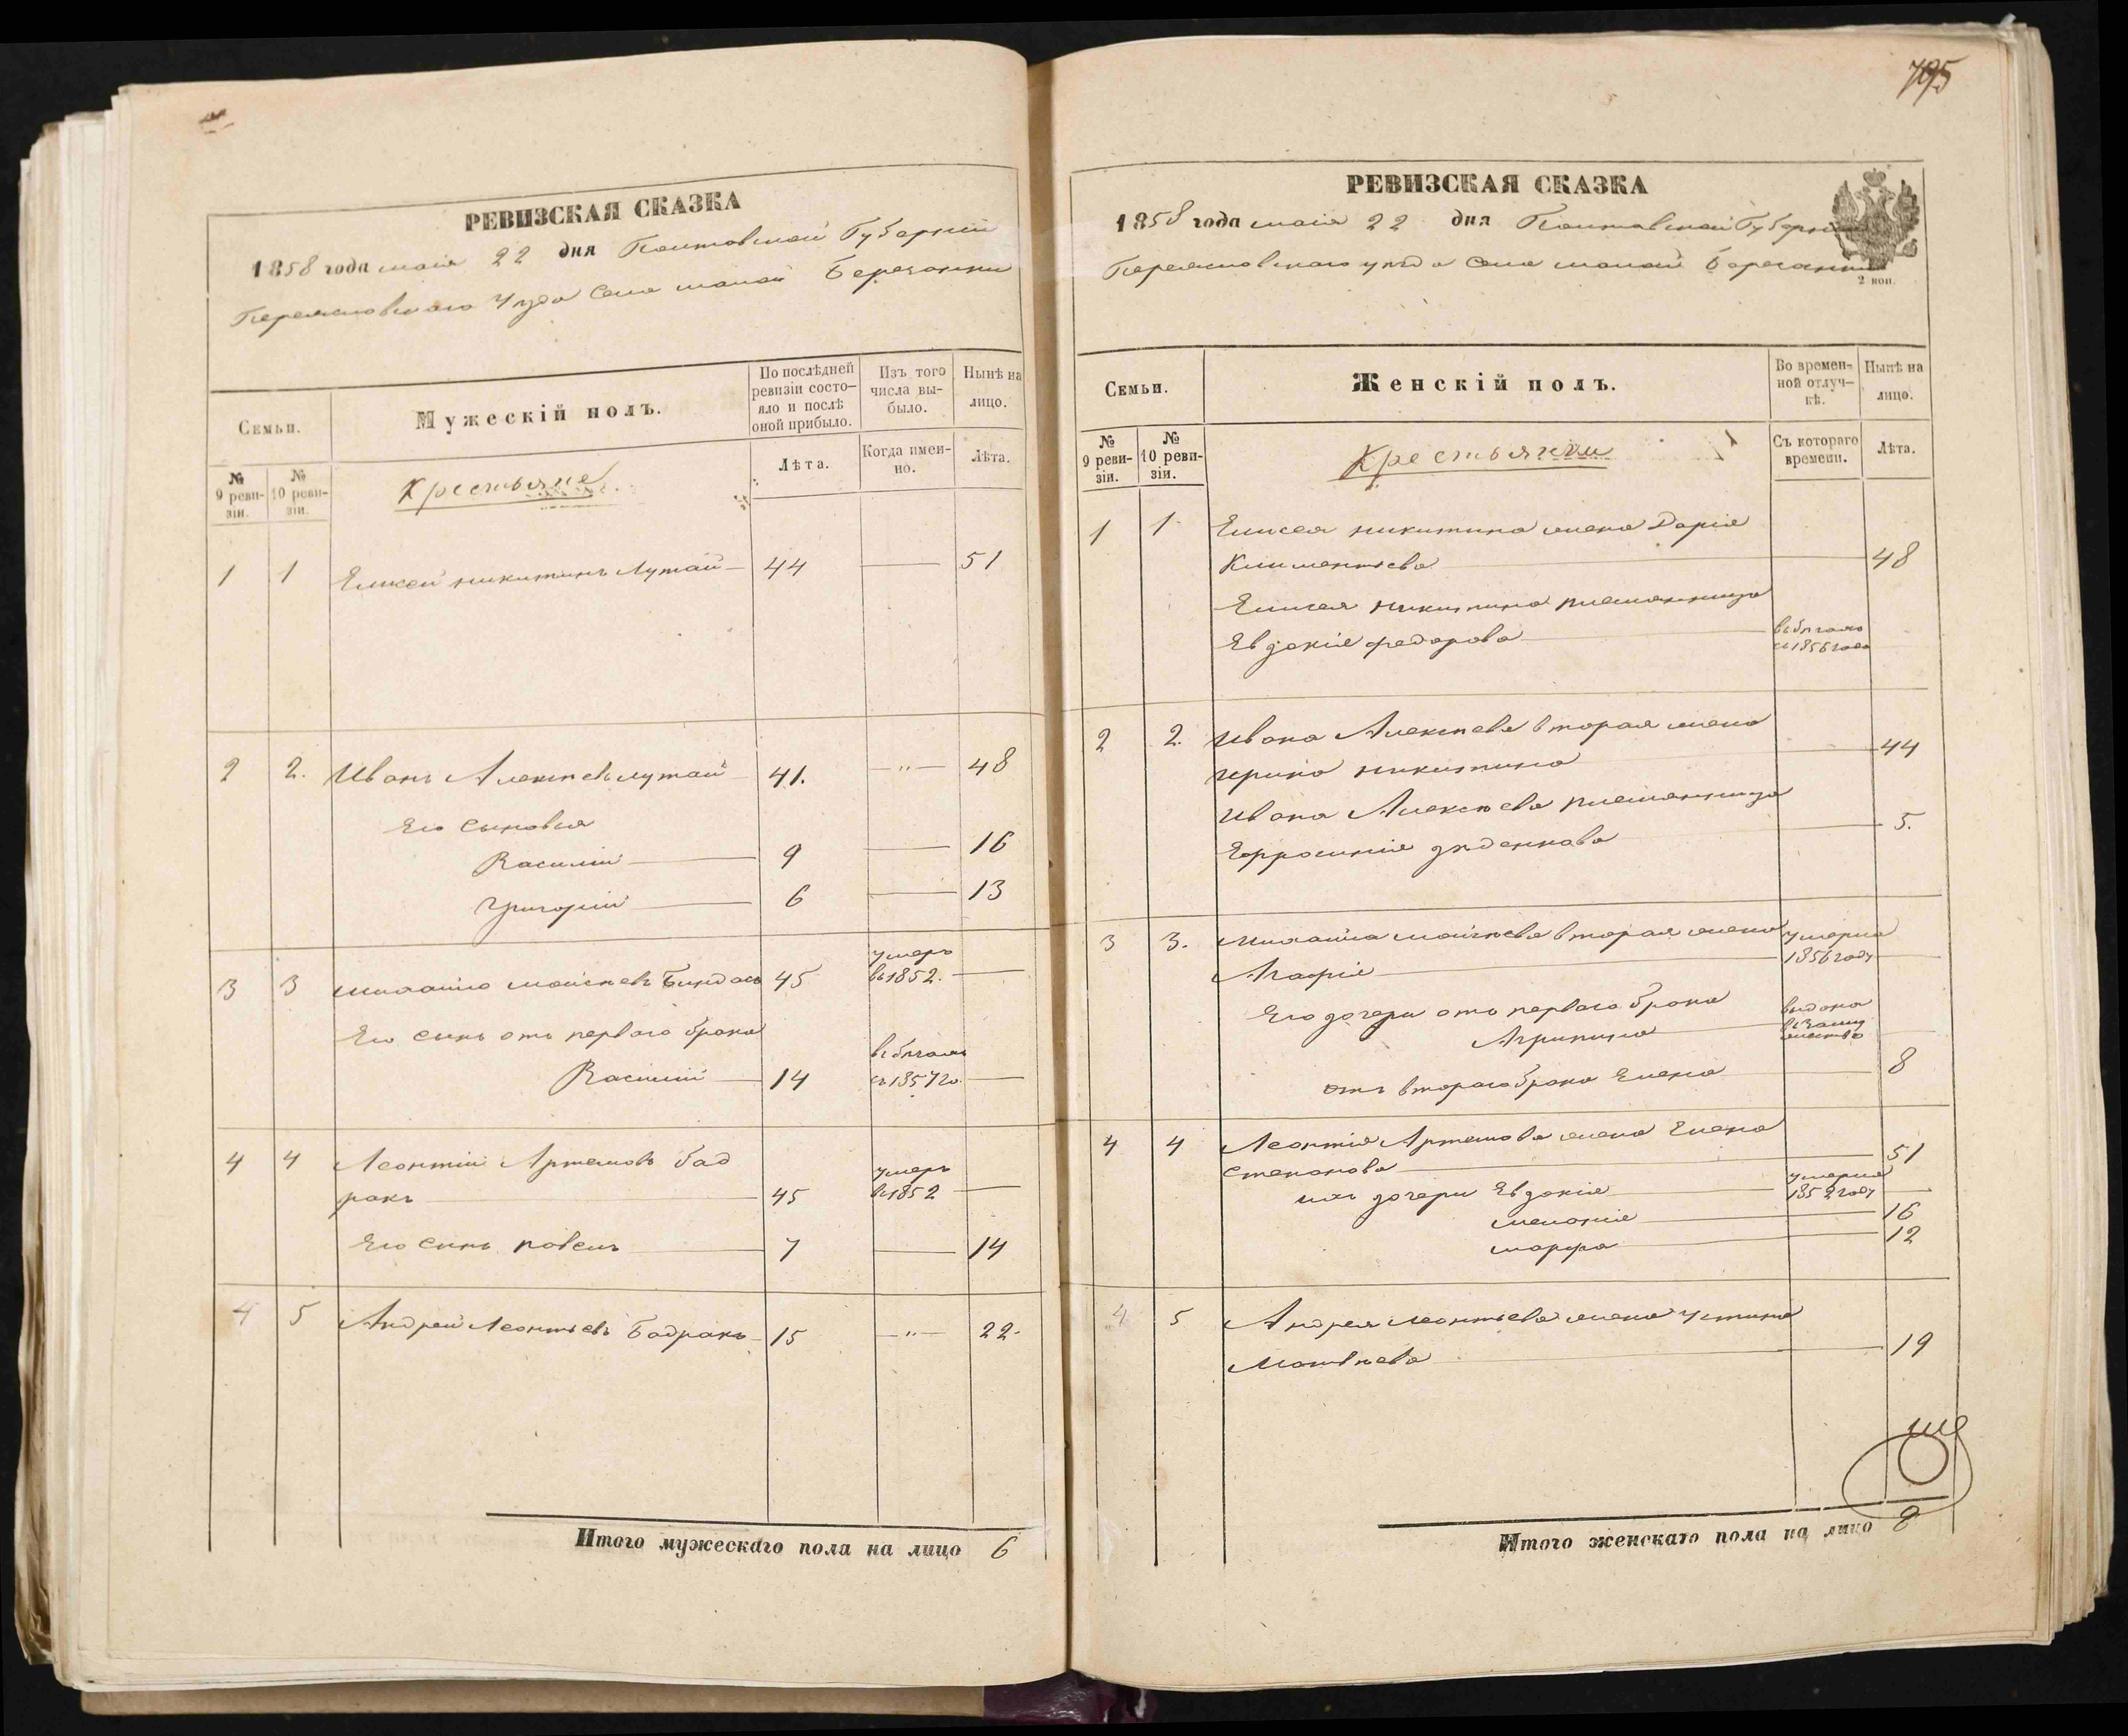 РЕВИЗСКАЯ СКАЗКА
1858 года маія 22 дня Полтавской Губерніи
Переяславскаго Уѣзда Села малой Березанки
Семьи.
Мужескій полъ.
По послѣдней ревизіи состо-
яло и послѣ
оной прибыло.
Изъ того
числа вы-
было.
Нынѣ на
лицо.
№
9 реви-
зіи.
№
10 реви-
зіи.
Крестьяне
Лѣта.
Когда имен-
но.
Лѣта.
1 1 Елисей никитинъ Лутай 44 51
2 2. Иванъ Алексѣевъ лутай 41. —"— 48
Его Сыновья
Василій 9 16
Григорій 6 13
умеръ
3 3 михайло моисѣевъ 45 въ 1852.
Его сынъ отъ перваго брака
в бѣгахъ
Василій 14 съ 1857 го.
4 4 Леонтій Артемовъ бад
умеръ
ракъ 45 въ 1852
Его сынъ павелъ 7 14
4 5 Андрей Леонтьевъ Бадракъ 15 —"— 22.
Итого мужескаго пола на лицо 6
795
РЕВИЗСКАЯ СКАЗКА
1858 года маія 22 дня Полтавской Губерніи
Переяславскаго уѣзда Села малой Березанки
2 коп.
Семьи.
Женскій полъ.
Во времен-
ной отлуч-
кѣ.
Нынѣ на
лицо.
№
9 реви-
зіи.
№
10 реви-
зіи.
Крестьянки
Съ котораго
времени.
Лѣта.
1 1 Елисея никитина жена Дарія
Климентьева 48
Елисея никитина племянница
Евдокія федорова в бѣгахъ
съ 1856 года
2 2. Ивана Алексѣева вторая жена
ирина никитина 44
Ивана Алексѣева племянница
Ефросинія 5.
3 3. михайла моисѣева вторая жена умерла
Агафія 1856 году
Его дочери отъ перваго брака выдана
Агрипина въ заму
жество
отъ втораго брака Елена 8
4 4 Леонтія Артемова жена Елена
Степанова 51
ихъ дочери Евдокія умерла
1852 году
меланія 16
марфа 12
4 5 Андрея леонтьева жена Устина
Матвѣева 19
Итого женскаго пола на лицо 8